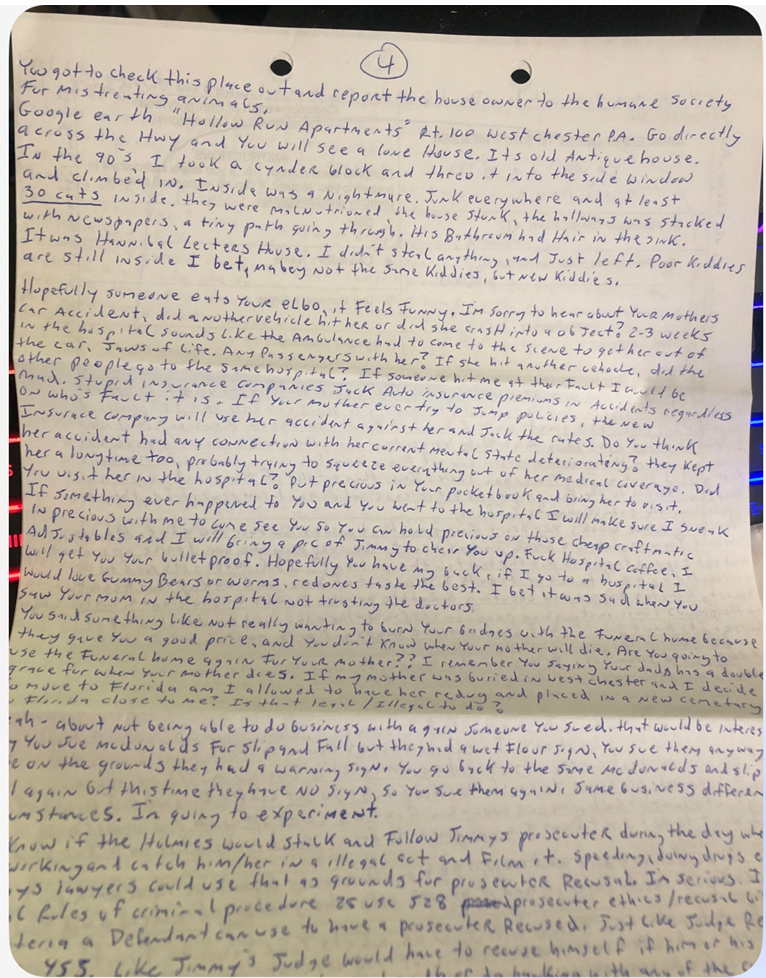 4
You got to check this place out and report the house owner to the humane society
For mistreating animals.
Google earth "Hollow Run Apartments" Rt. 100 west chester PA. Go directly
across the Hwy and you will see a lone House. Its old Antique house.
In the 90's I took a cynder block and threw it into the side window
and climbed in. Inside was a Nightmare. Junk everywhere and at least
30 cats inside. they were malnutrioned, the house stunk, the hallways was stacked
with newspapers, a tiny path going through. His Bathroom had Hair in the sink.
It was Hannibal Lecters House. I didn't steal anything, and Just left. Poor Kiddies
are still inside I bet, mabey Not the same Kiddies, but new Kiddies.
Hopefully someone eats Your elbo, it Feels Funny. Im sorry to hear about Your mothers
car Accident, did another vehicle hit her or did she crash into a object? 2-3 weeks
in the hospital sounds like the Ambulance had to come to the scene to get her out of
the car, Jaws of Life. Any Passengers with her? If she hit another vehicle, did the
other people go to the same hospital? If someone hit me at their Fault I would be
mad. Stupid insurance companies Jack Auto insurance premiums in Accidents regardless
on who's Fault it is. If Your mother ever try to Jump policies, the new
Insurace company will use her accident against her and Jack the rates. Do You think
her accident had any connection with her current mental state deteriorateing? they Kept
her a longtime too, probably trying to squeeze everything out of her medical coverage. Did
You visit her in the hospital? Put precious in Your pocketbook and bring her to visit.
If something ever happened to You and You went to the hospital I will make sure I sneak
in precious with me to come see You so You can hold precious on those cheap craftmatic
Adjustables and I will bring a pic of Jimmy to chear You up. Fuck Hospital coffee, I
will get You Your bulletproof. Hopefully You have my back, if I go to a hospital I
would love Gummy Bears or worms, red ones taste the best. I bet it was sad when You
saw Your mom in the hospital not trusting the doctors.
You said something like not really wanting to burn Your bridges with the Funeral home because
they gave You a good price, and You don't Know when Your mother will die. Are You going to
use the Funeral home again For Your mother?? I remember You saying Your dads has a double
grave for when Your mother dies. If my mother was buried in west chester and I decide
move to Florida am I allowed to have her redug and placed in a new cemetary
Florida close to me? Is that legal / illegal to do?
about not being able to do business with again someone You sued. that would be interes
You Sue mcdonalds For slip and Fall but they had a wet Flour sign, You sue them anyway
on the grounds they had a warning sign. You go back to the same mcdonalds and slip
again but this time they have NO sign, so You sue them again, same business differen
umstances. Im going to experiment.
Know if the Holmies would stalk and Follow Jimmys prosecuter during the day whe
working and catch him/her in a illegal act and Film it. Speeding, doing drugs
ys lawyers could use that as grounds for prosecuter Recusal. Im serious. I
Rules of criminal procedure 28 USC 528 prosecuter ethics/recusal
teria a Defendant can use to have a prosecuter Recused. Just Like Judge Re
455. Like Jimmy's Judge would have to recuse himself if him or his